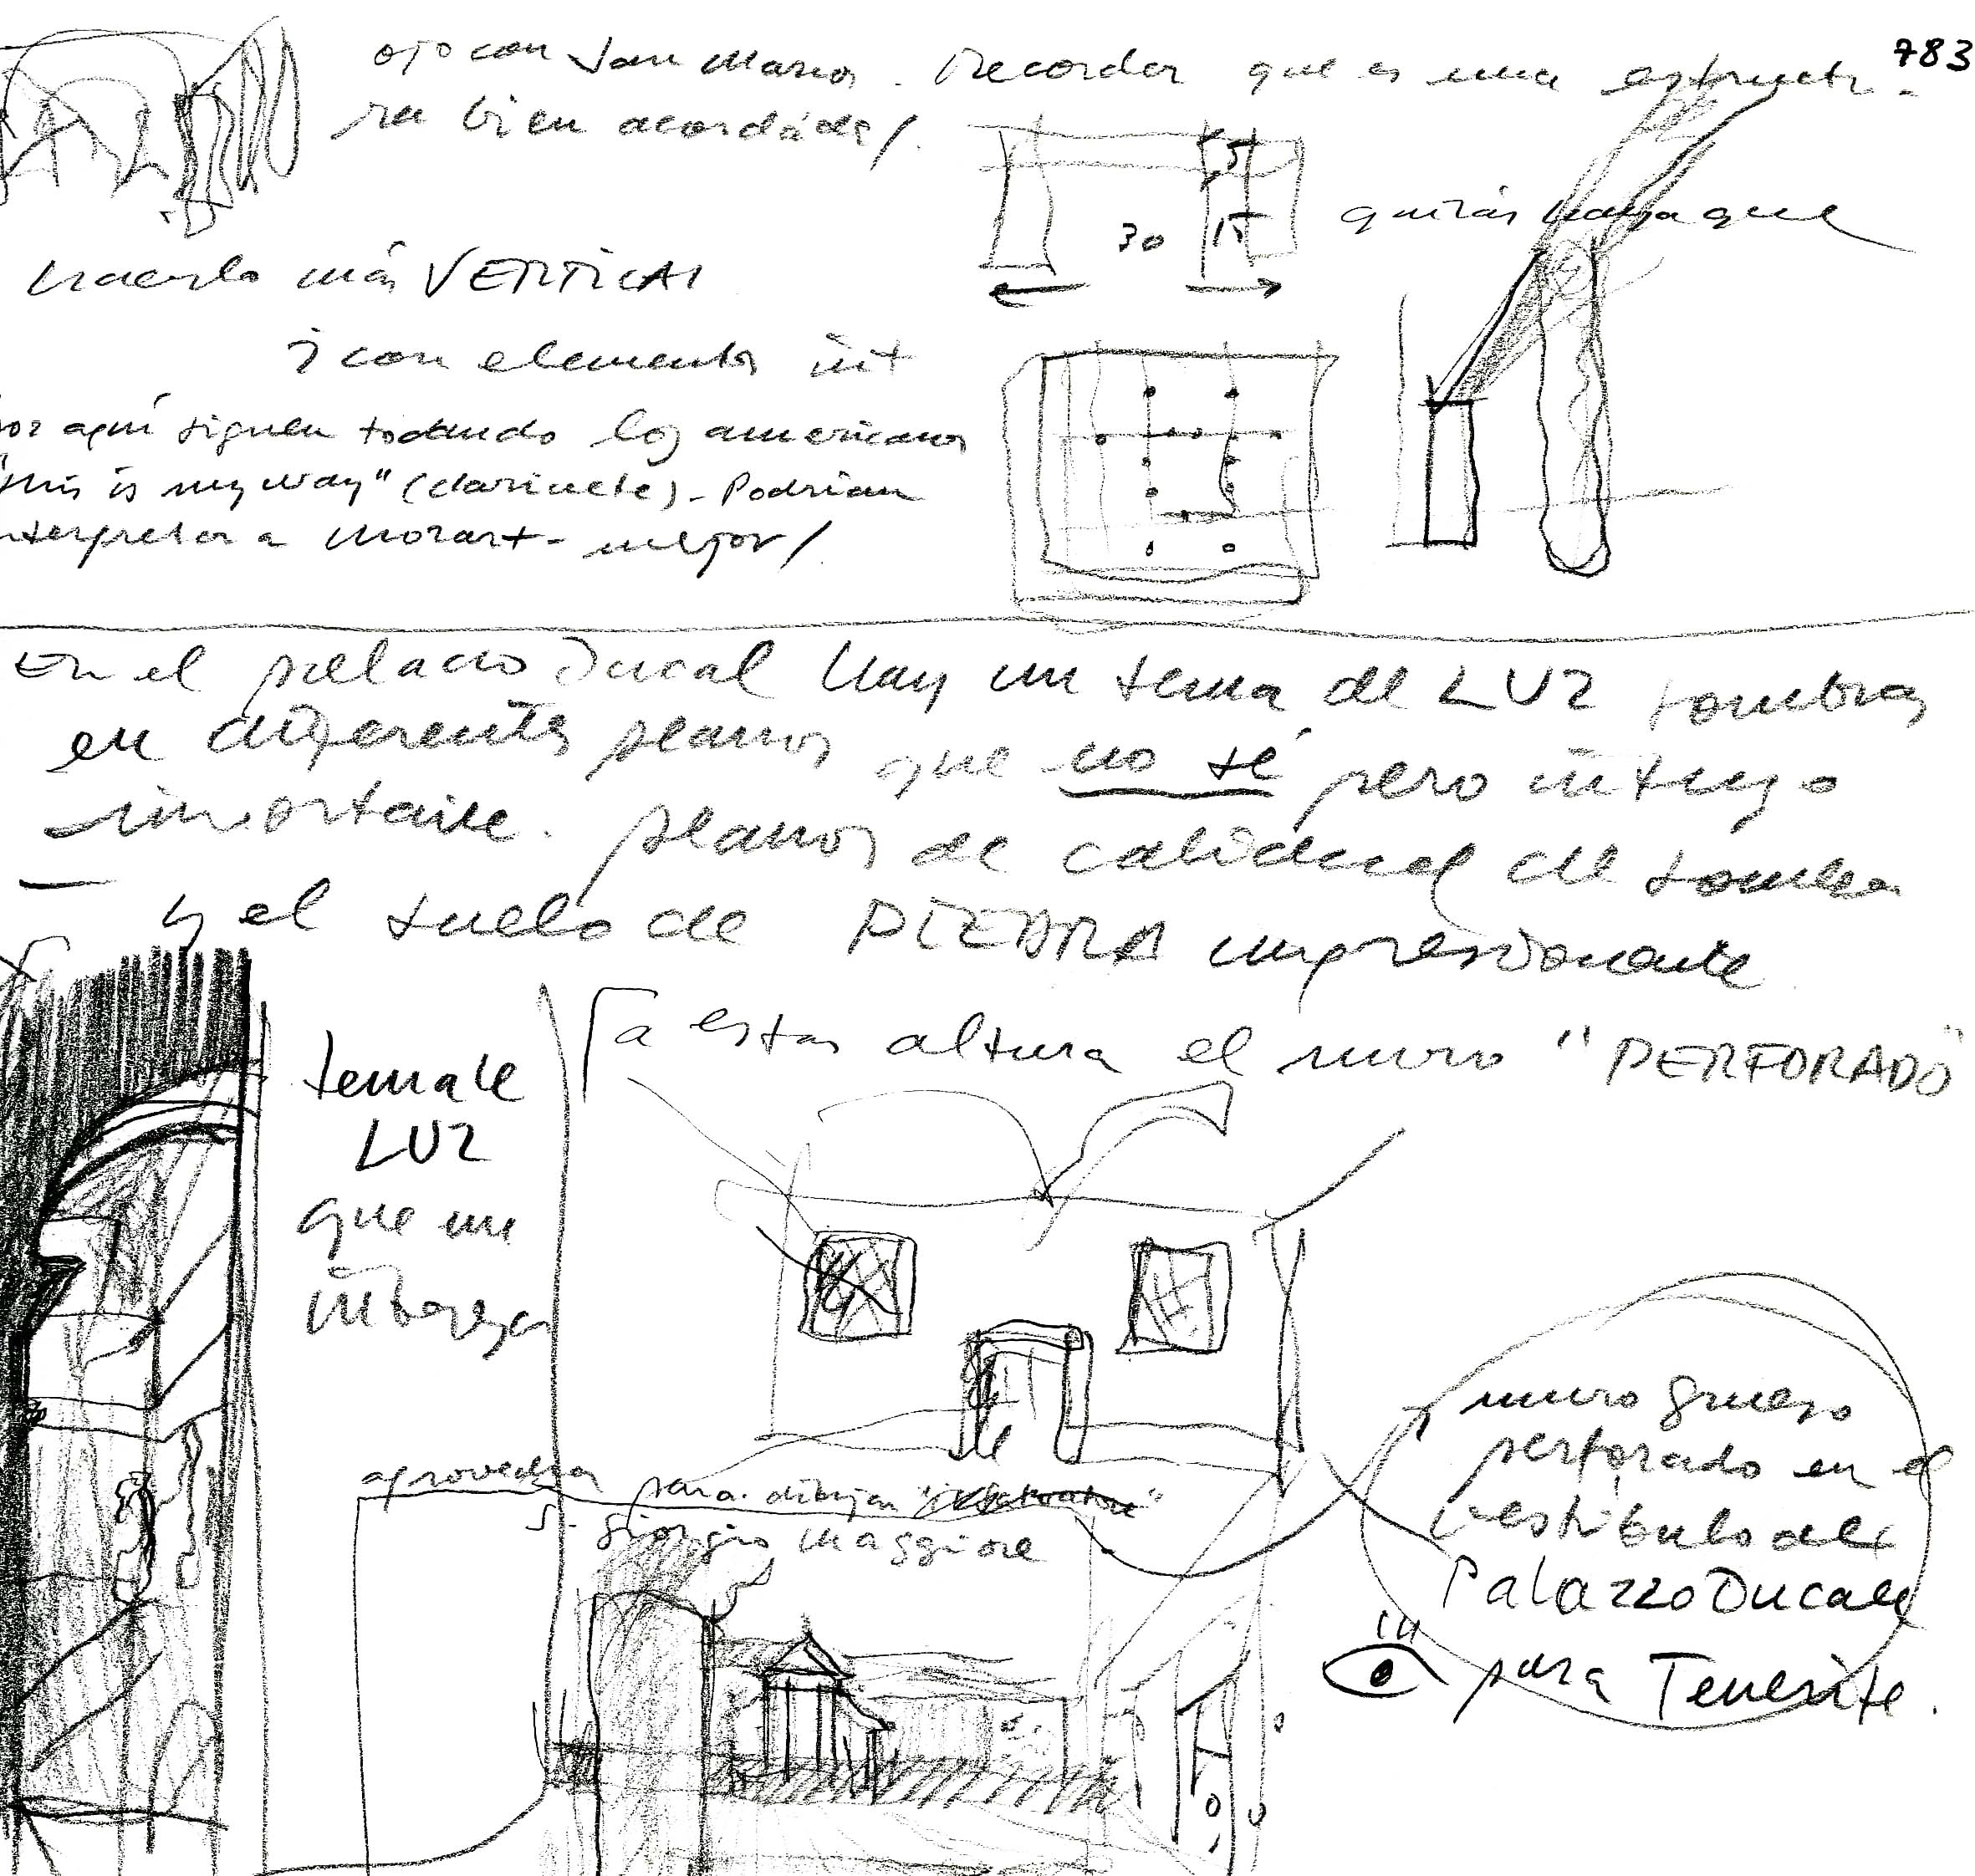 783
ojo con San Marcos. Recordar que es una estructu-
ra bien acordada/.
5
30 15
quizás haya que
hacerlo más VERTICAL
? con elementos int
por aquí siguen tocando los americanos
"this is my way" (clarinete) - Podrían
interpretar a Mozart - mejor/
En el palacio Ducal hay un tema de LUZ sombras
en diferentes planos que no sé pero intuyo
importante. planos de calidad de sombra
y el suelo de PIEDRA impresionante
tema de
LUZ
que me
interesa
a estas altura el muro "PERFORADO"
aprovechar para dibujar
S. Giorgio Maggiore
muro grueso
perforado en el
vestíbulo del
Palazzo Ducale
para Tenerife.